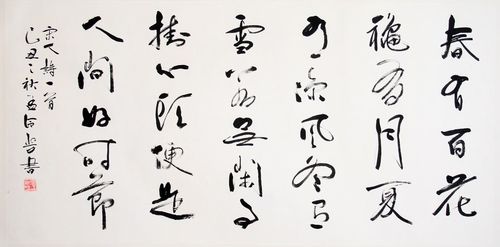 春有百花
龝有月夏
有涼風冬有
雪若無閑事
掛心頭便是
人間好時節
宋人詩一首
己丑之秋書